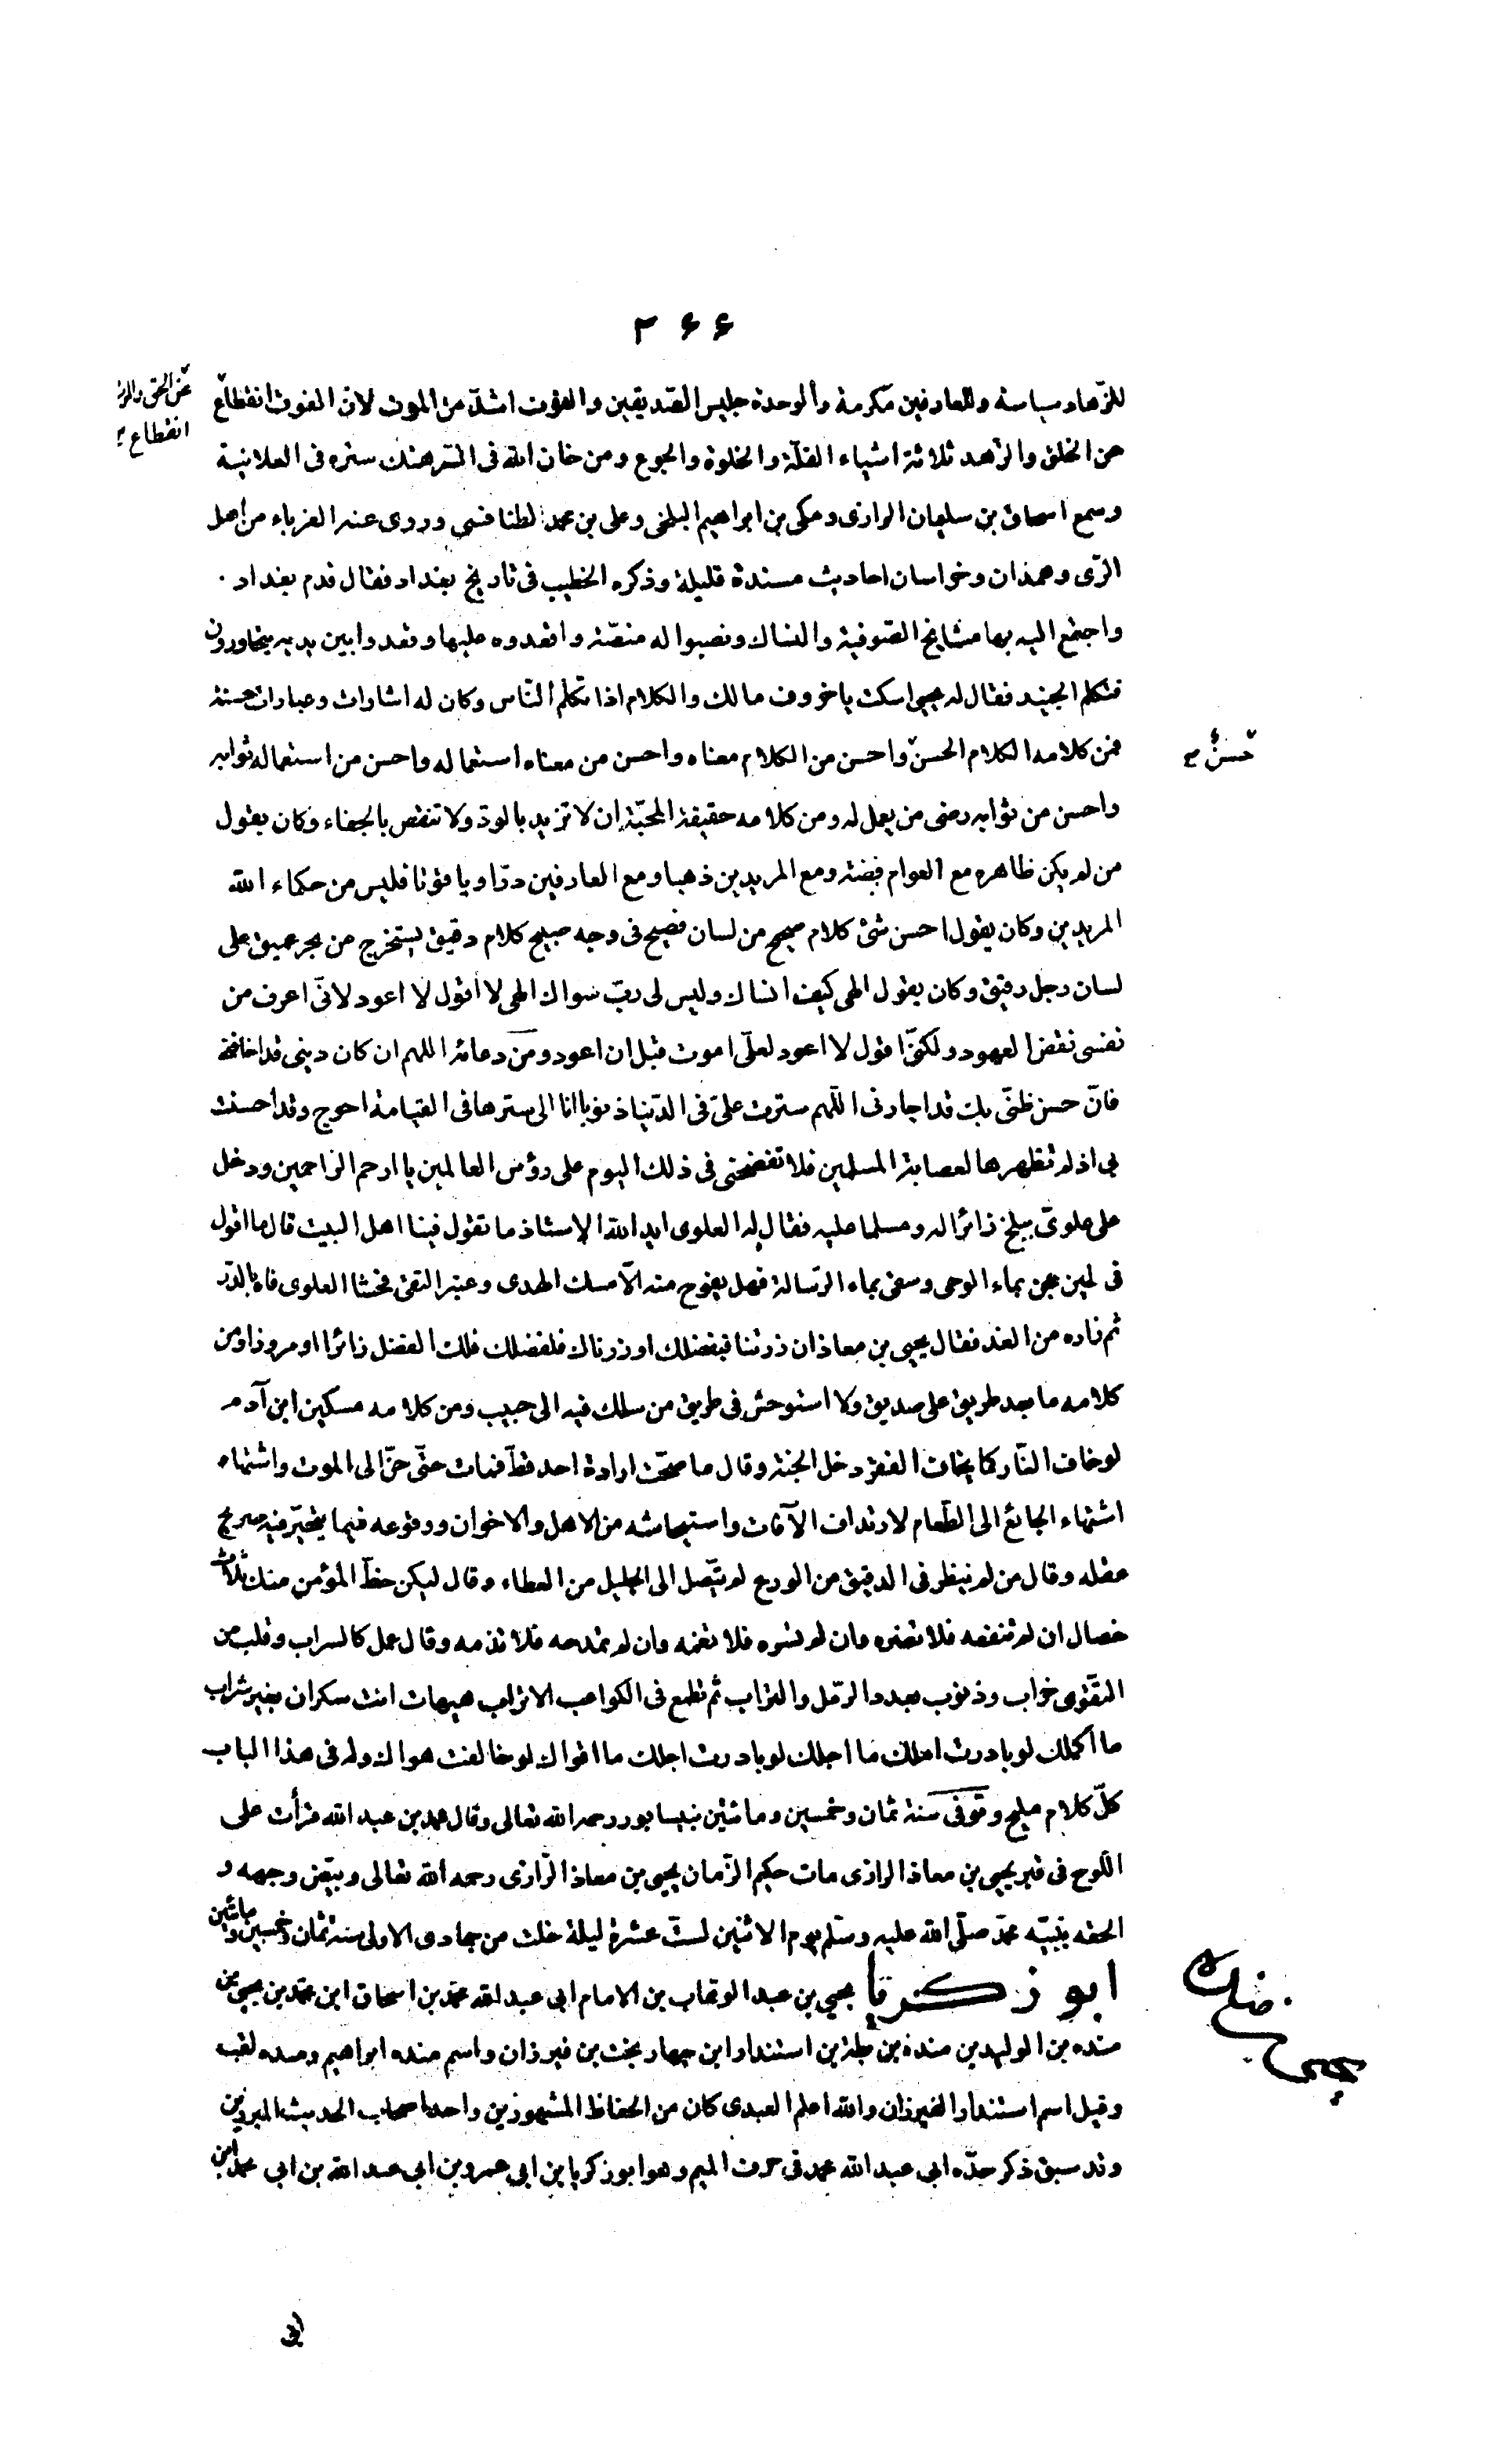 ٣٦٦
للزّهاد سياسة وللعارفين مكرمة والوحدة جليس الصّديقين والفوت اشدّ من الموت لان الفوت انقطاع
عن الحق والموت
انقطاع
عن الخلق والزهد ثلاثة اشياء القلّة والخلوة والجوع ومن خان الله فى السّر هتك ستره فى العلانية
وسمع اسحاق بن سليمان الرازى ومكى بن ابراهيم البلخى وعلى بن محمد الطنافسى وروى عنه الغرباء من اهل
الرّى وهمذان وخراسان احاديث مسندة قليلة وذكره الخطيب فى تاريخ بغداد فقال قدم بغداد
واجتمع اليه بها مشايخ الصّوفية والنساك ونصبوا له منصّة واقعدوه عليها وقعدوا بين يديه يتحاورون
فتكلم الجنيد فقال له يحيى اسكت يا خروف مالك والكلام اذا تكلم النّاس وكان له اشارات وعبارات حسنة
فمن كلامه الكلام الحسن واحسن من الكلام معناه واحسن من معناه استعماله واحسن من استعماله ثوابه
حسن
واحسن من ثوابه رضى من يعمل له ومن كلامه حقيقة المحبّة ان لا تزيد بالودّ ولا تنقص بالجفاء وكان يقول
من لم يكن ظاهره مع العوام فضة ومع المريدين ذهبا ومع العارفين درّا وياقوتا فليس من حكماء الله
المريدين وكان يقول احسن شئ كلام صحيح من لسان فصيح فى وجه صبيح كلام دقيق يستخرج من بحر عميق على
لسان رجل رفيق وكان يقول الهى كيف انساك وليس لى ربّ سواك الهى لا اقول لا اعود لانّى اعرف من
نفسى نقض العهود ولكنّى اقول لا اعود لعلّى اموت قبل ان اعود ومن دعائه اللهم ان كان ذنبى قد اخافنى
فانّ حسن ظنّى بك قد اجارنى اللّهم سترت علىّ فى الدّنيا ذنوبا انا الى سترها فى القيامة احوج وقد احسنت
بى اذ لم تظهرها لعصابة المسلمين فلا تفضحنى فى ذلك اليوم على رؤس العالمين يا ارحم الراحمين ودخل
على علوىّ ببلخ زائرا له ومسلما عليه فقال له العلوى ايد الله الاستاذ ما تقول فينا اهل البيت قال ما اقول
فى لبن عجن بماء الوحى وسقى بماء الرّسالة فهل يفوح منه الّا مسك الهدى وعنبر التقى فحشا العلوى فاه بالدّر
ثم زاره من الغد فقال يحيى بن معاذ ان زرتنا فبفضلك او زرناك فلفضلك فلك الفضل زائرا او مزورا ومن
كلامه ما بعد طريق على صديق ولا استوحش فى طريق من سلك فيه الى حبيب ومن كلامه مسكين ابن آدم
لو خاف النّار كما يخاف الفقر دخل الجنة وقال ما صحّت ارادة احد قطّ فمات حتّى حنّ الى الموت واشتهاه
اشتهاء الجائع الى الطّعام لارتداف الآفات واستيحاشه من الاهل والاخوان ووقوعه فيما يتحيّر فيه صريح
عقله وقال من لم ينظر فى الدقيق من الورع لم يتّصل الى الجليل من العطاء وقال ليكن حظّ المؤمن منك ثلاث
خصال ان لم تنفعه فلا تضره وان لم تسره فلا تغمه وان لم تمدحه فلا تذمه وقال عمل كالسراب وقلب من
التقوى خراب وذنوب بعدد الرمّل والتراب ثم تطمع فى الكواعب الاتراب هيهات انت سكران بغير شراب
ما اكملك لو بادرت املك ما اجلك لو بادرت اجلك ما اقواك لو خالفت هواك وله فى هذا الباب
كلّ كلام مليح وتوفى سنة ثمان وخمسين ومائتين بنيسابور رحمه الله تعالى وقال محمد بن عبد الله قرأت على
اللّوح فى قبر يحيى بن معاذ الرازى مات حكيم الزّمان يحيى بن معاذ الرّازى رحمه الله تعالى وبيّض وجهه و
الحقه بنبيّه محمّد صلّى الله عليه وسلّم يوم الاثنين لستّ عشرة ليلة خلت من جمادى الاولى سنة ثمان وخمسين ومائتين
ابو زكريا يحيى بن عبد الوهاب بن الامام ابى عبد الله محمّد بن اسحاق ابن محمّد بن يحيى بن
يحيى
منده بن الوليد بن مندة بن بطة بن استندار ابن جهار بخت بن فيرزان واسم منده ابراهيم ومنده لقب
وقيل اسم استندار الفيرزان والله اعلم العبدى كان من الحفاظ المشهورين واحد اصحاب الحديث المبرزين
وقد سبق ذكر جدّه ابى عبد الله محمد فى حرف الميم وهو ابو زكريا بن ابى عمرو بن ابى عبد الله بن ابى محمد ابن